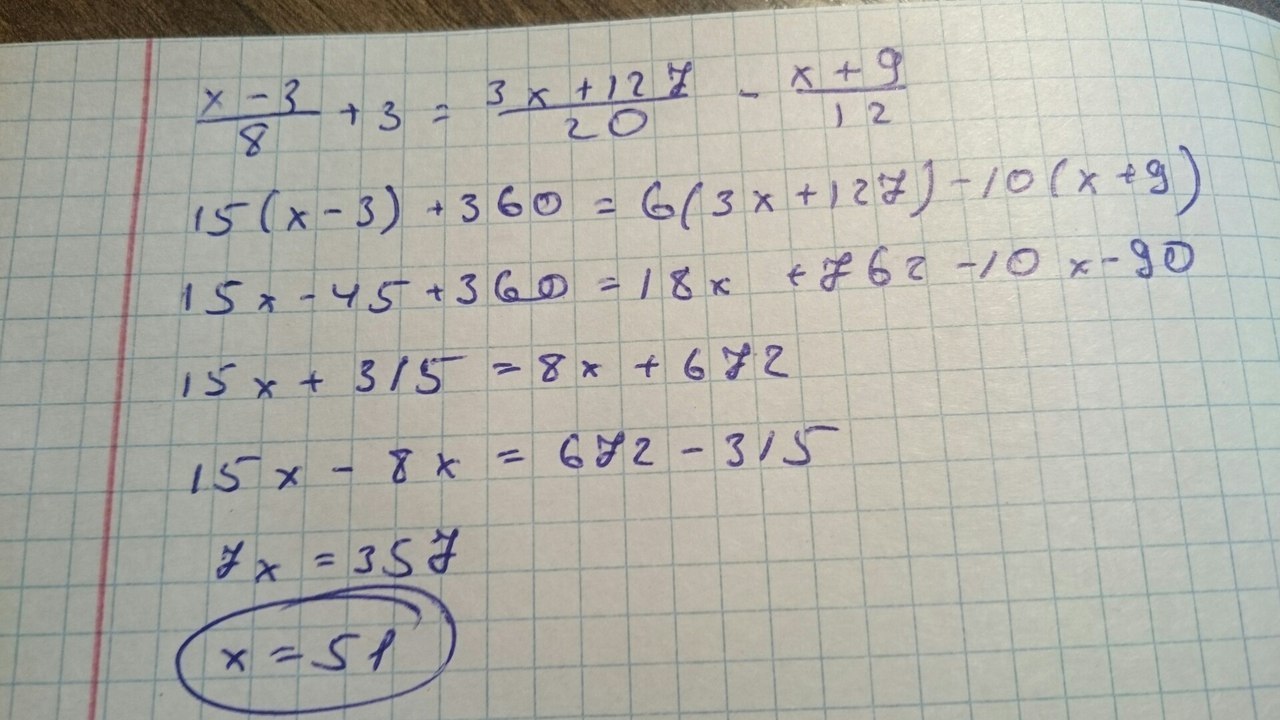 (x-3)/8 + 3 = (3x+127)/20 - (x+9)/12
15(x-3)+360 = 6(3x+127)-10(x+9)
15x-45+360=18x +762-10x-90
15x+315=8x+672
15x-8x=672-315
7x=357
x=51